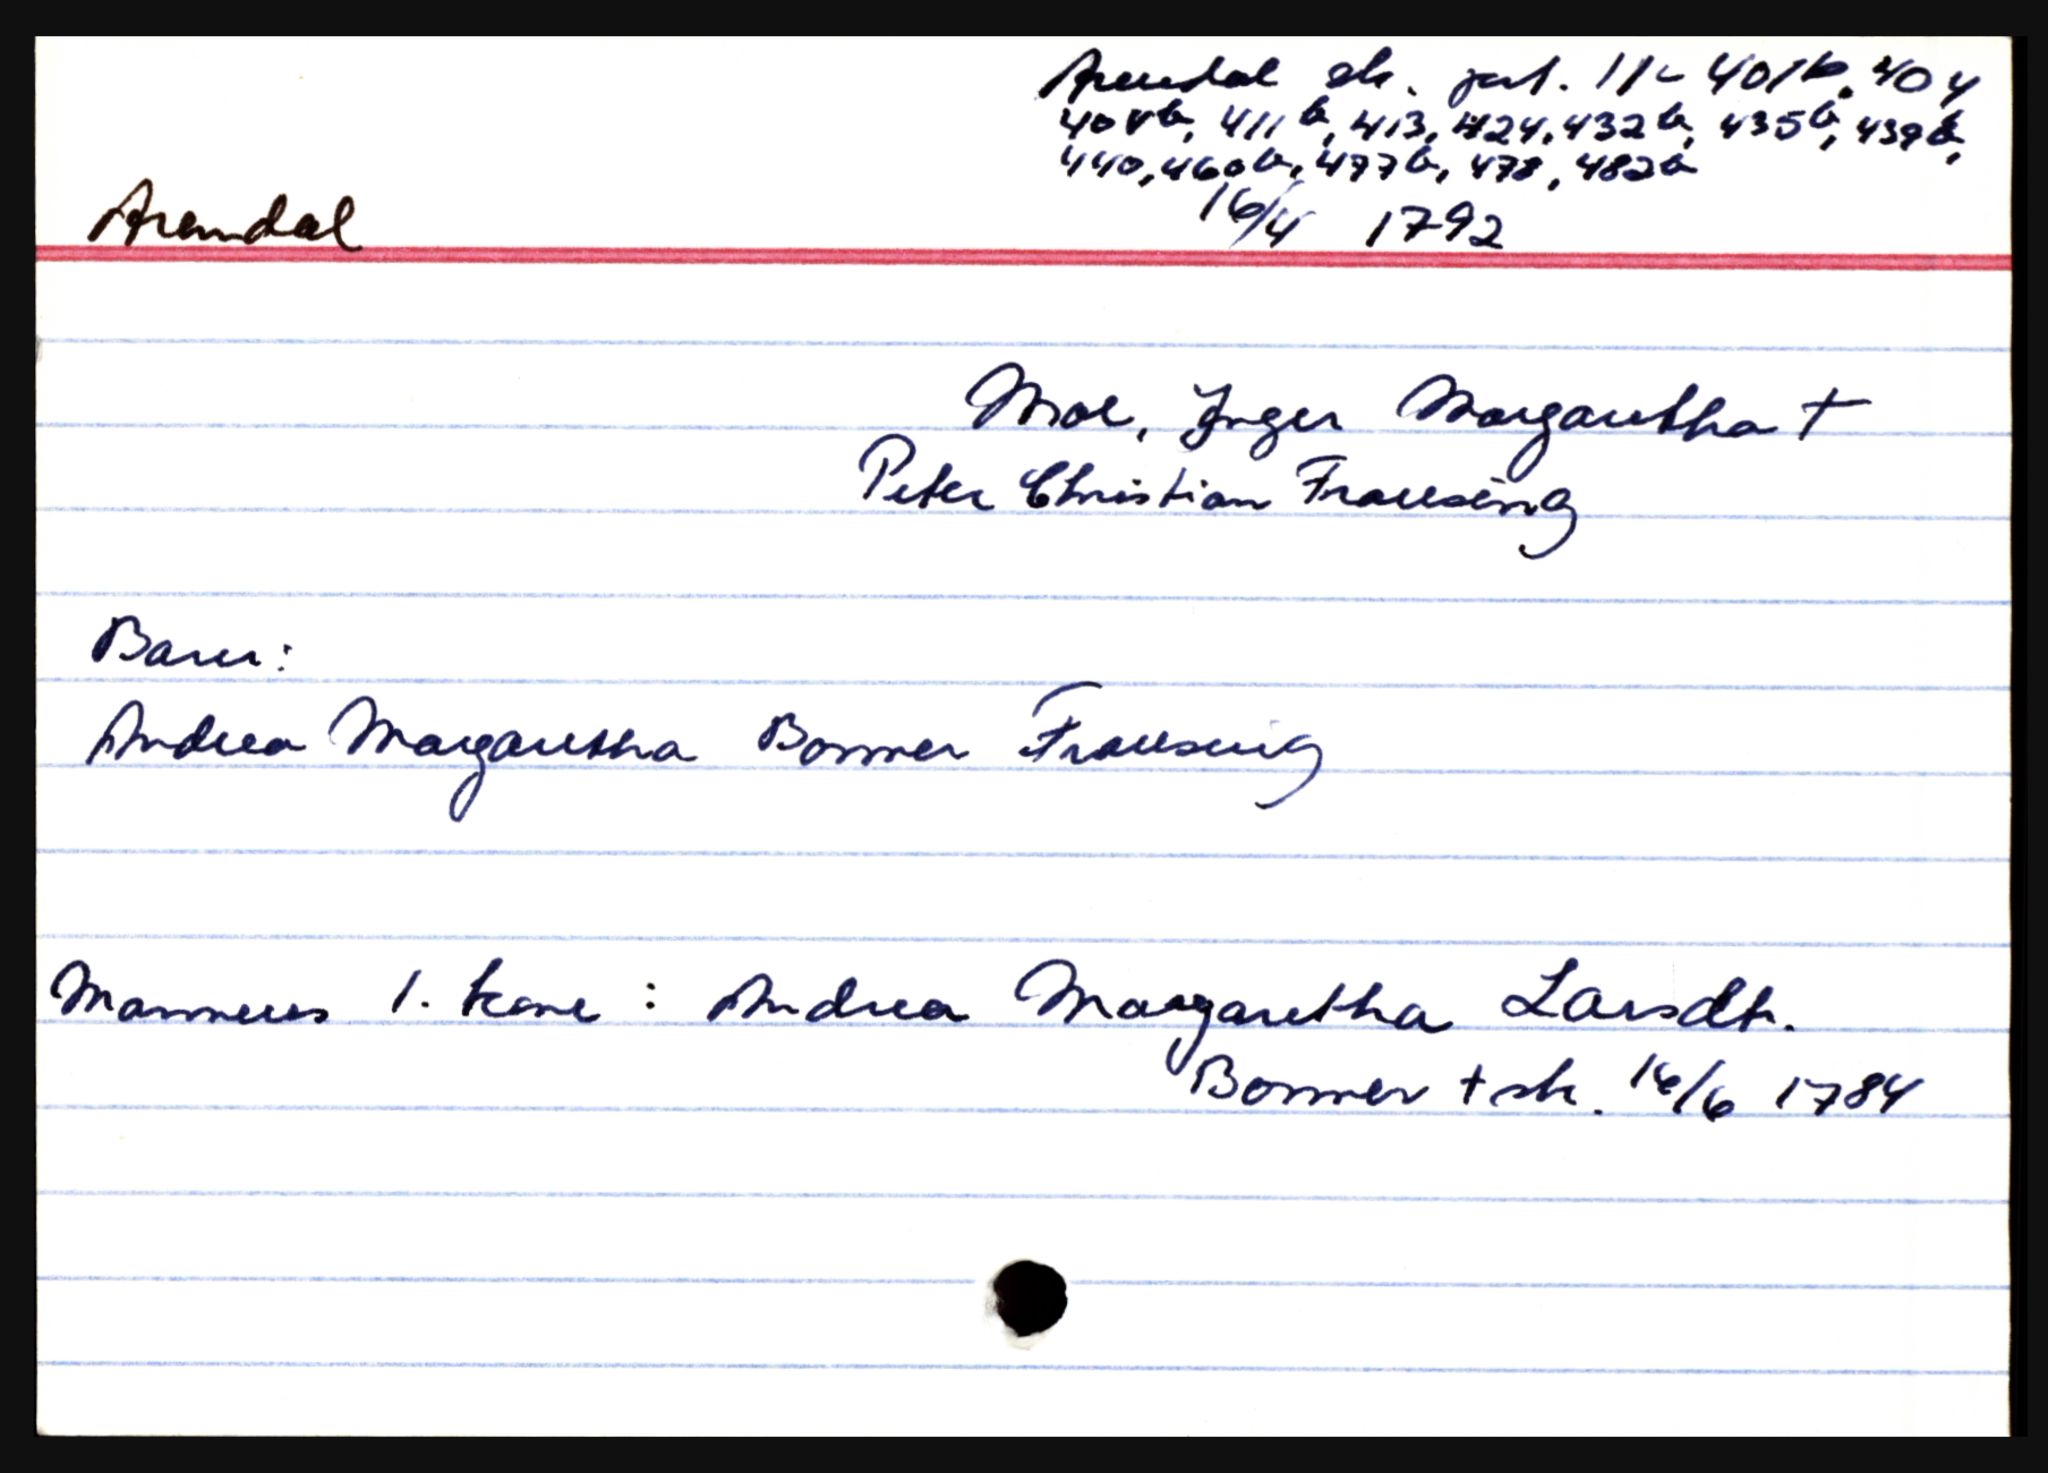 Arendal sk. prot. 11 - 401b, 404
408b, 411b, 413, 424, 432b, 435b, 439b,
440, 460b, 477b, 478, 482b
16/4 1792
Arendal
Moe, Inger Margaretha †
Peter Christian Frausing
Barn:
Andrea Margaretha Bommer Frausing
Mannens 1. kone : Andrea Margaretha Larsdtr.
Bommer † sk. 16/6 1784